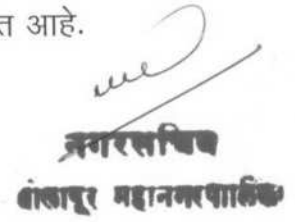 त आहे.
नगरसचिव
सोलापूर महानगरपालिका